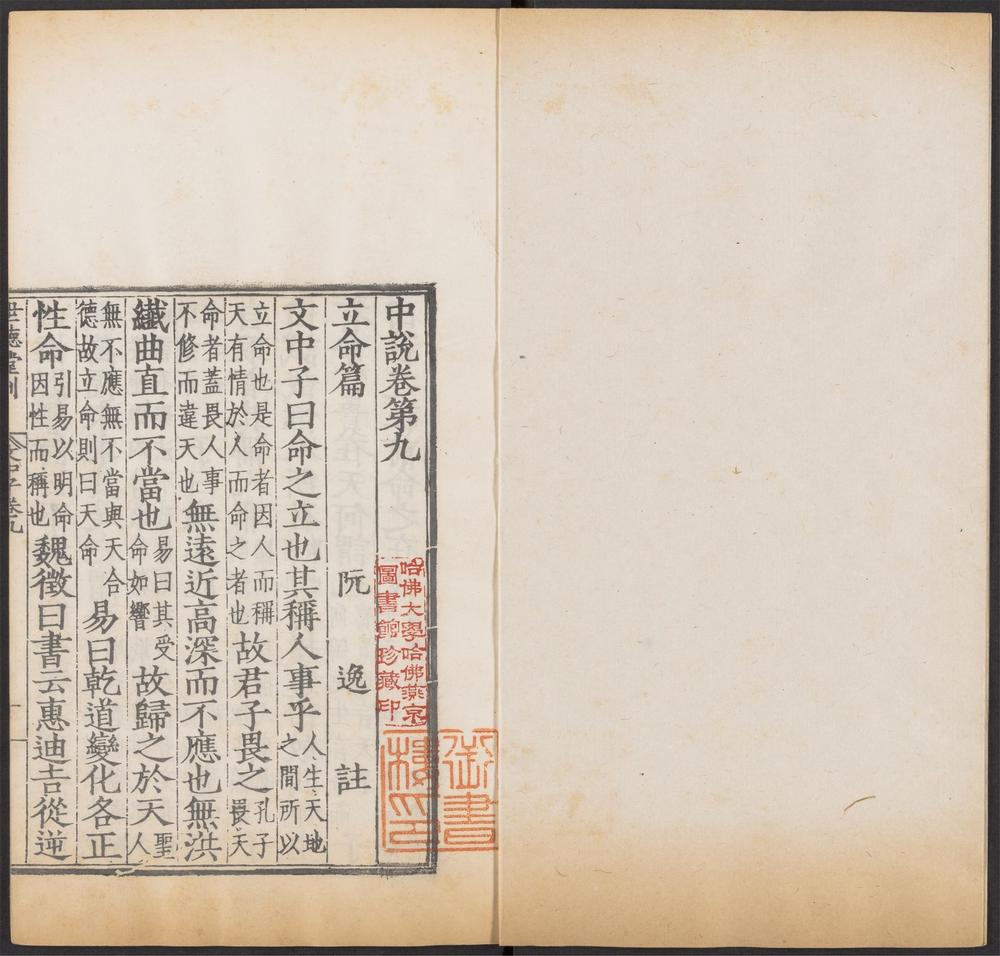 中說卷第九
立命篇　阮逸註
文中子曰命之立也其稱人事乎人生天地之間所以
立命也是命者因人而稱天有情於人而命之者也故君子畏之孔子畏天
命者蓋畏人事不修而違天也無遠近高深而不應也無洪
纖曲直而不當也易曰其受命如響故歸之於天聖人
無不應無不當與天合德故立命則曰天命易曰乾道變化各正
性命引易以明命因性而稱也魏徵曰書云惠迪吉從逆
世德堂刊
哈佛大學哈佛燕京
圖書館珍藏印
御書
樓印